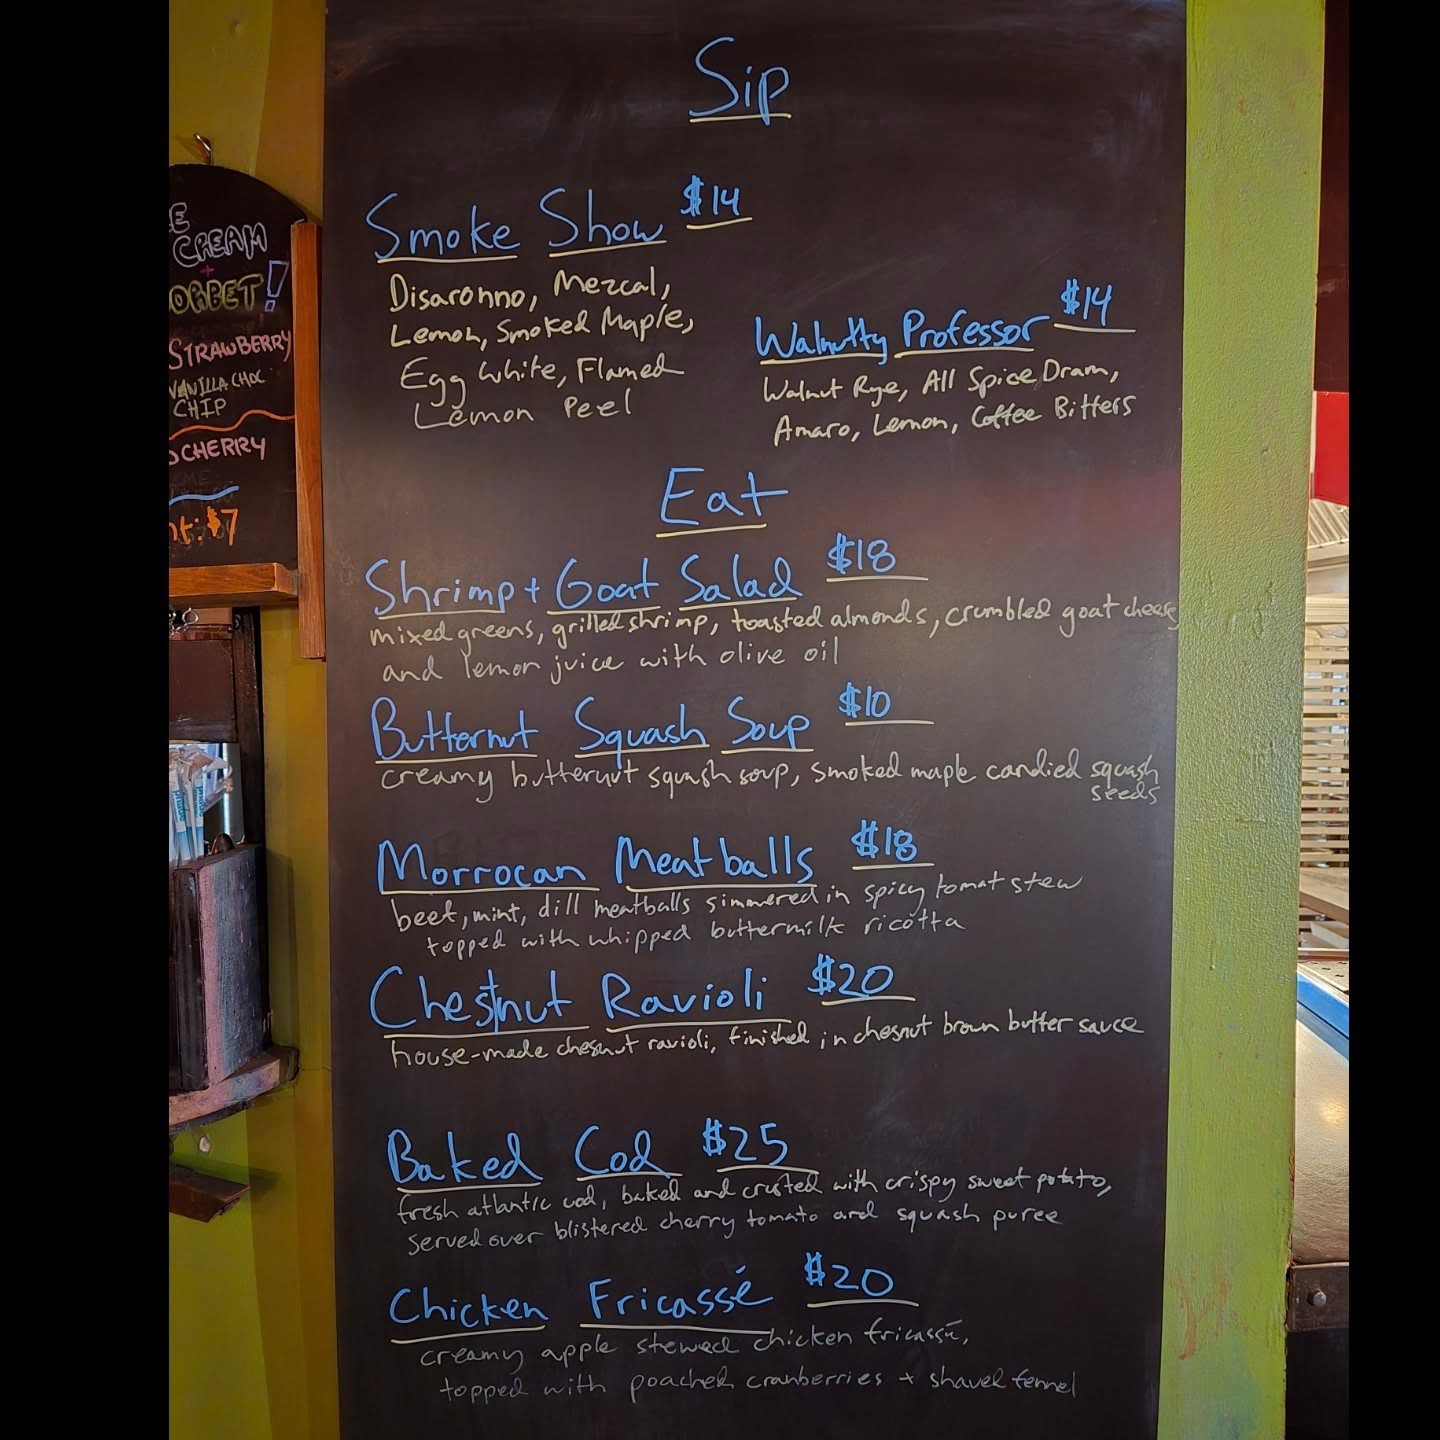 Sip
Smoke Show $14
Disaronno, Mezcal,
Lemon, Smoked Maple,
Egg White, Flamed
Lemon Peel
Walnutty Professor $14
Walnut Rye, All Spice Dram,
Amaro, Lemon, Coffee Bitters
Eat
Shrimp + Goat Salad $18
mixed greens, grilled shrimp, toasted almonds, crumbled goat cheese
and lemon juice with olive oil
Butternut Squash Soup $10
creamy butternut squash soup, smoked maple candied squash
seeds
Morrocan Meatballs $18
beef, mint, dill meatballs simmered in spicy tomat stew
topped with whipped buttermilk ricotta
Chestnut Ravioli $20
house-made chesnut ravioli, finished in chesnut brown butter sauce
Baked Cod $25
fresh atlantic cod, baked and crusted with crispy sweet potato,
served over blistered cherry tomato and squash puree
Chicken Fricassé $20
creamy apple stewed chicken fricassé,
topped with poached cranberries + shaved fennel
CREAM
+
ORBET!
STRAWBERRY
VANILLA CHOC
CHIP
CHERRY
nt: $7